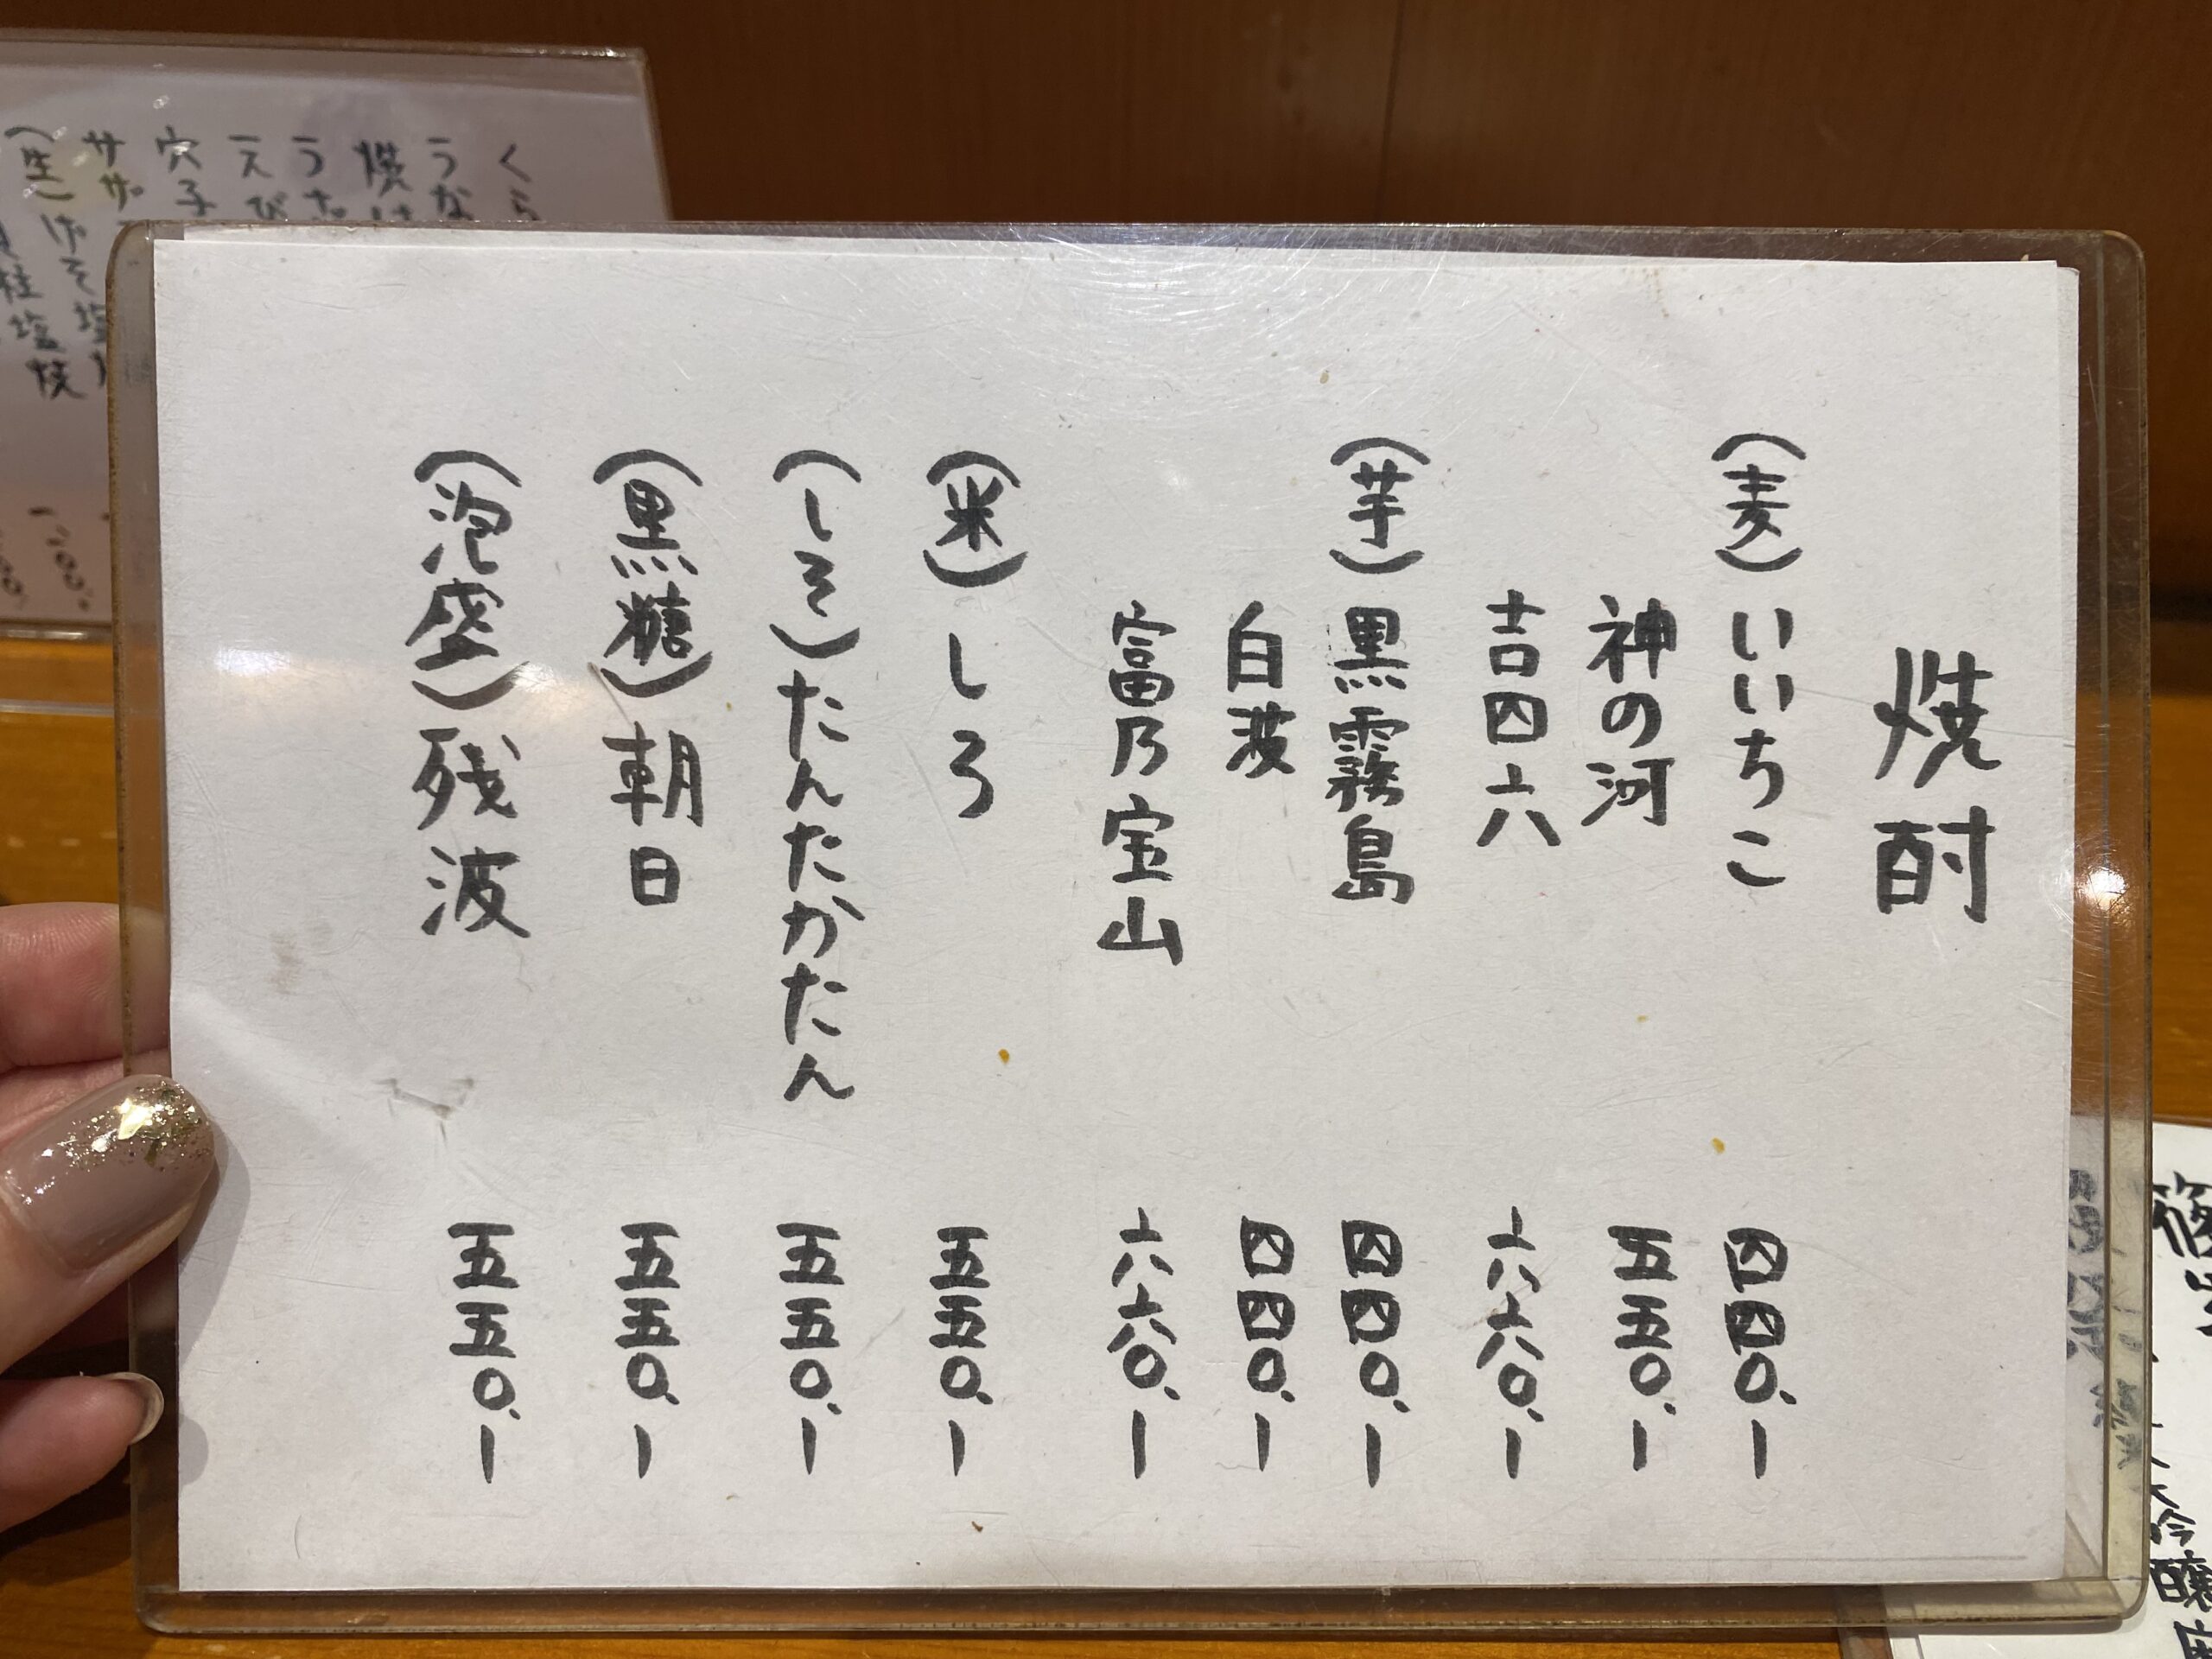 焼酎
(麦) いいちこ 四四〇、ー
神の河 五五〇、ー
吉四六 六六〇、ー
(芋) 黒霧島 四四〇、ー
白波 四四〇、ー
富乃宝山 六六〇、ー
(米) しろ 五五〇、ー
(しそ) たんたかたん 五五〇、ー
(黒糖) 朝日 五五〇、ー
(泡盛) 残波 五五〇、ー
くら
うな
焼は
うざ
えび
穴子
サザ
(生)げそ塩焼
柱塩焼
大吟醸